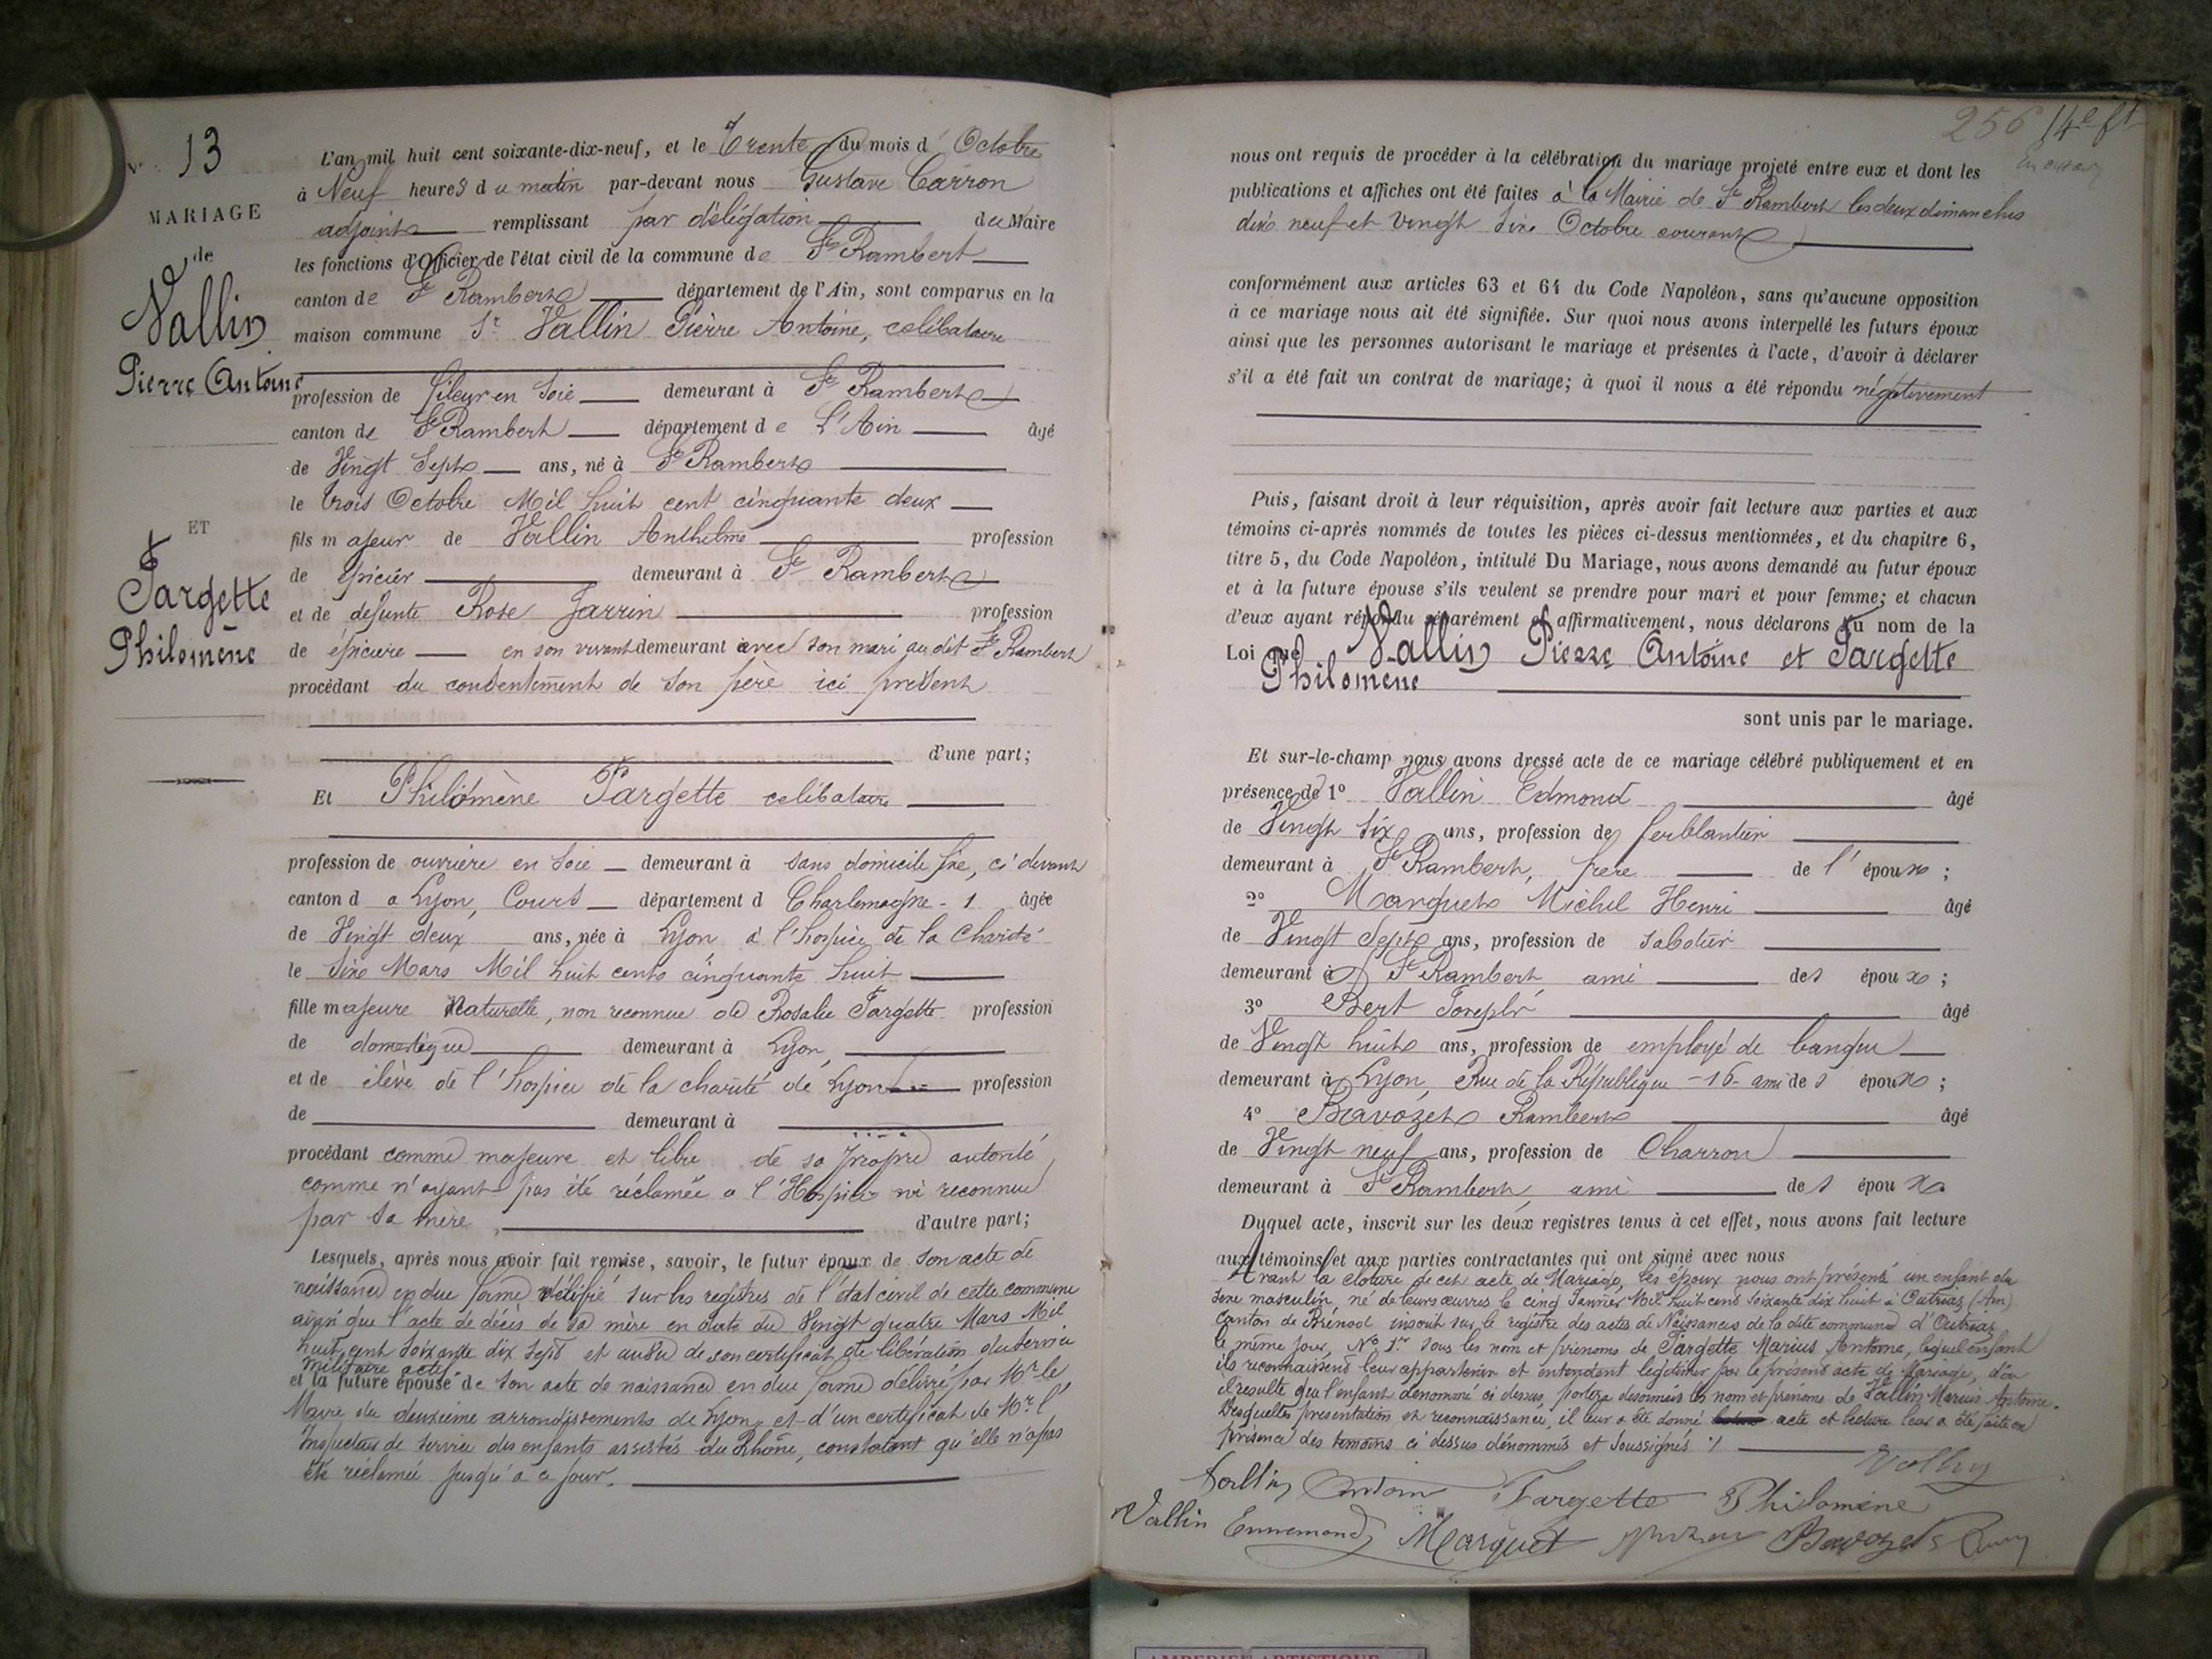 N° 13
MARIAGE
de
Vallin
Pierre Antoine
ET
Fargette
Philomène
L'an mil huit cent soixante-dix-neuf, et le Trente du mois d'Octobre
à Neuf heures du matin par-devant nous Gustave Carron
adjoint remplissant par délégation du Maire
les fonctions d'Officier de l'état civil de la commune de St Rambert
canton de St Rambert département de l'Ain, sont comparus en la
maison commune Sr Vallin Pierre Antoine, célibataire
profession de fileur en soie demeurant à St Rambert
canton de St Rambert département de L'Ain âgé
de Vingt Sept ans, né à St Rambert
le trois Octobre Mil huit cent cinquante deux
fils majeur de Vallin Anthelme profession
de épicier demeurant à St Rambert
et de defunte Rose Jarrin profession
de épiciere en son vivant demeurant avec son mari au dit St Rambert
procédant du consentement de son père ici présent
d'une part;
Et Philomène Fargette celibataire
profession de ouvrière en soie demeurant à sans domicile fixe, ci devant
canton d a Lyon, Cours département d Charlemagne - 1 âgée
de Vingt deux ans, née à Lyon à l'hospice de la Charité
le six Mars Mil huit cent cinquante huit
fille majeure Naturelle, non reconnue de Rosalie Fargette profession
de domestique demeurant à Lyon,
et de élève de l'hospice de la charité de Lyon profession
de demeurant à
procédant comme majeure et libre de sa propre autorité
comme n'ayant pas été réclamée a l'Hospice ni reconnue
par sa mère, d'autre part;
Lesquels, après nous avoir fait remise, savoir, le futur époux de son acte de
naissance en due forme vérifié sur les registres de l'état civil de cette commune
ainsi que l'acte de décès de sa mère en date du Vingt quatre Mars Mil
huit cent soixante dix sept et aussi de son certificat de libération du service
militaire actif
et la future épouse de son acte de naissance en due forme délivré par Mr le
Maire du deuxième arrondissement de Lyon et d'un certificat de Mr l'
Inspecteur de service des enfants assistés du Rhône, constatant qu'elle n'a pas
été réclamée jusqu'à ce jour.
256 14e ft
nous ont requis de procéder à la célébration du mariage projeté entre eux et dont les
publications et affiches ont été faites à la Mairie de St Rambert les deux dimanches
dix neuf et vingt six Octobre courant
conformément aux articles 63 et 64 du Code Napoléon, sans qu'aucune opposition
à ce mariage nous ait été signifiée. Sur quoi nous avons interpellé les futurs époux
ainsi que les personnes autorisant le mariage et présentes à l'acte, d'avoir à déclarer
s'il a été fait un contrat de mariage; à quoi il nous a été répondu négativement
Puis, faisant droit à leur réquisition, après avoir fait lecture aux parties et aux
témoins ci-après nommés de toutes les pièces ci-dessus mentionnées, et du chapitre 6,
titre 5, du Code Napoléon, intitulé Du Mariage, nous avons demandé au futur époux
et à la future épouse s'ils veulent se prendre pour mari et pour femme; et chacun
d'eux ayant répondu séparément et affirmativement, nous déclarons au nom de la
Loi que Vallin Pierre Antoine et Fargette
Philomène
sont unis par le mariage.
Et sur-le-champ nous avons dressé acte de ce mariage célébré publiquement et en
présence de 1° Vallin Edmond âgé
de Vingt six ans, profession de ferblantier
demeurant à St Rambert, frère de l'époux;
2° Marquet Michel Henri âgé
de Vingt Sept ans, profession de sabotier
demeurant à St Rambert ami des époux;
3° Bert Joseph âgé
de Vingt huit ans, profession de employé de banque
demeurant à Lyon, Rue de la République - 16 - ami des époux;
4° Bavozet Rambert âgé
de Vingt neuf ans, profession de Charron
demeurant à St Rambert, ami des époux
Duquel acte, inscrit sur les deux registres tenus à cet effet, nous avons fait lecture
aux témoins et aux parties contractantes qui ont signé avec nous
Avant la cloture de cet acte de Mariage, les époux nous ont présenté un enfant du
sexe masculin, né de leurs œuvres le cinq Janvier Mil huit cent soixante dix huit à Outriaz (Ain)
Canton de Brénod inscrit sur le registre des actes de Naissances de la dite commune d'Outriaz
le même jour, No 1er sous les nom et prénoms de Fargette Marius Antoine, lequel enfant
ils reconnaissent leur appartenir et entendent légitimer par le présent acte de Mariage, d'où
il resulte que l'enfant dénommé ci dessus, portera désormais les nom et prénoms de Vallin Marius Antoine.
Desquelles présentation et reconnaissance, il leur a été donné acte et lecture leur a été faite en
présence des témoins ci dessus dénommés et soussignés
Vallin
Vallin Antoine Fargette Philomène
Vallin Ennemond Marquet Bavozet
AMBERIEU ARTISTIQUE